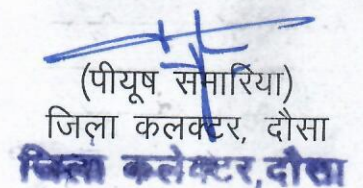 (पीयूष समारिया)
जिला कलक्टर, दौसा
जिला कलेक्टर,दौसा